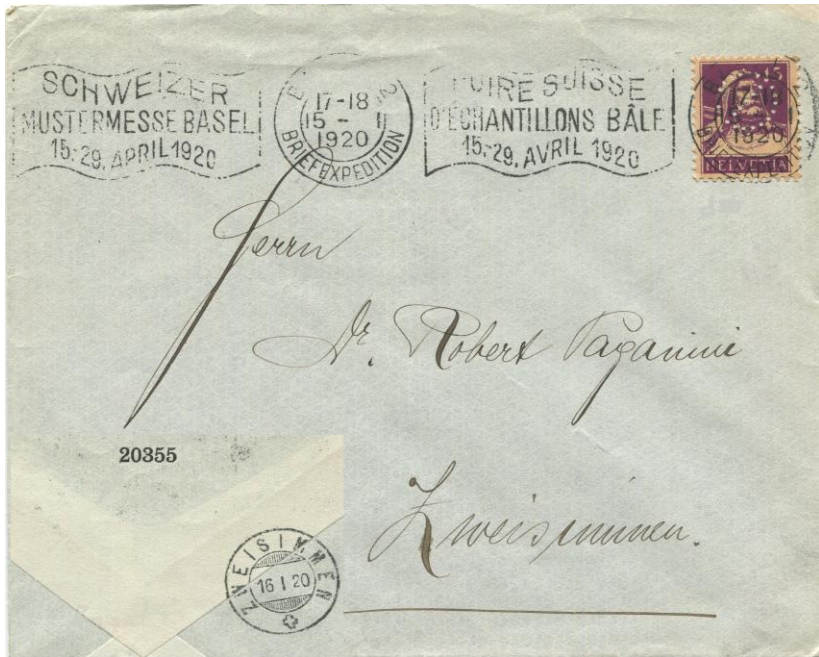 SCHWEIZER
MUSTERMESSE BASEL
15.-29. APRIL 1920
17-18
15 -
1920
BRIEFEXPEDITION
FOIRE SUISSE
D'ÉCHANTILLONS BÂLE
15.-29. AVRIL 1920
15
17-18
1920
HELVETIA
Herrn
Dr. Robert Paganini
Zweisimmen.
20355
ZWEISIMMEN
16 I 20